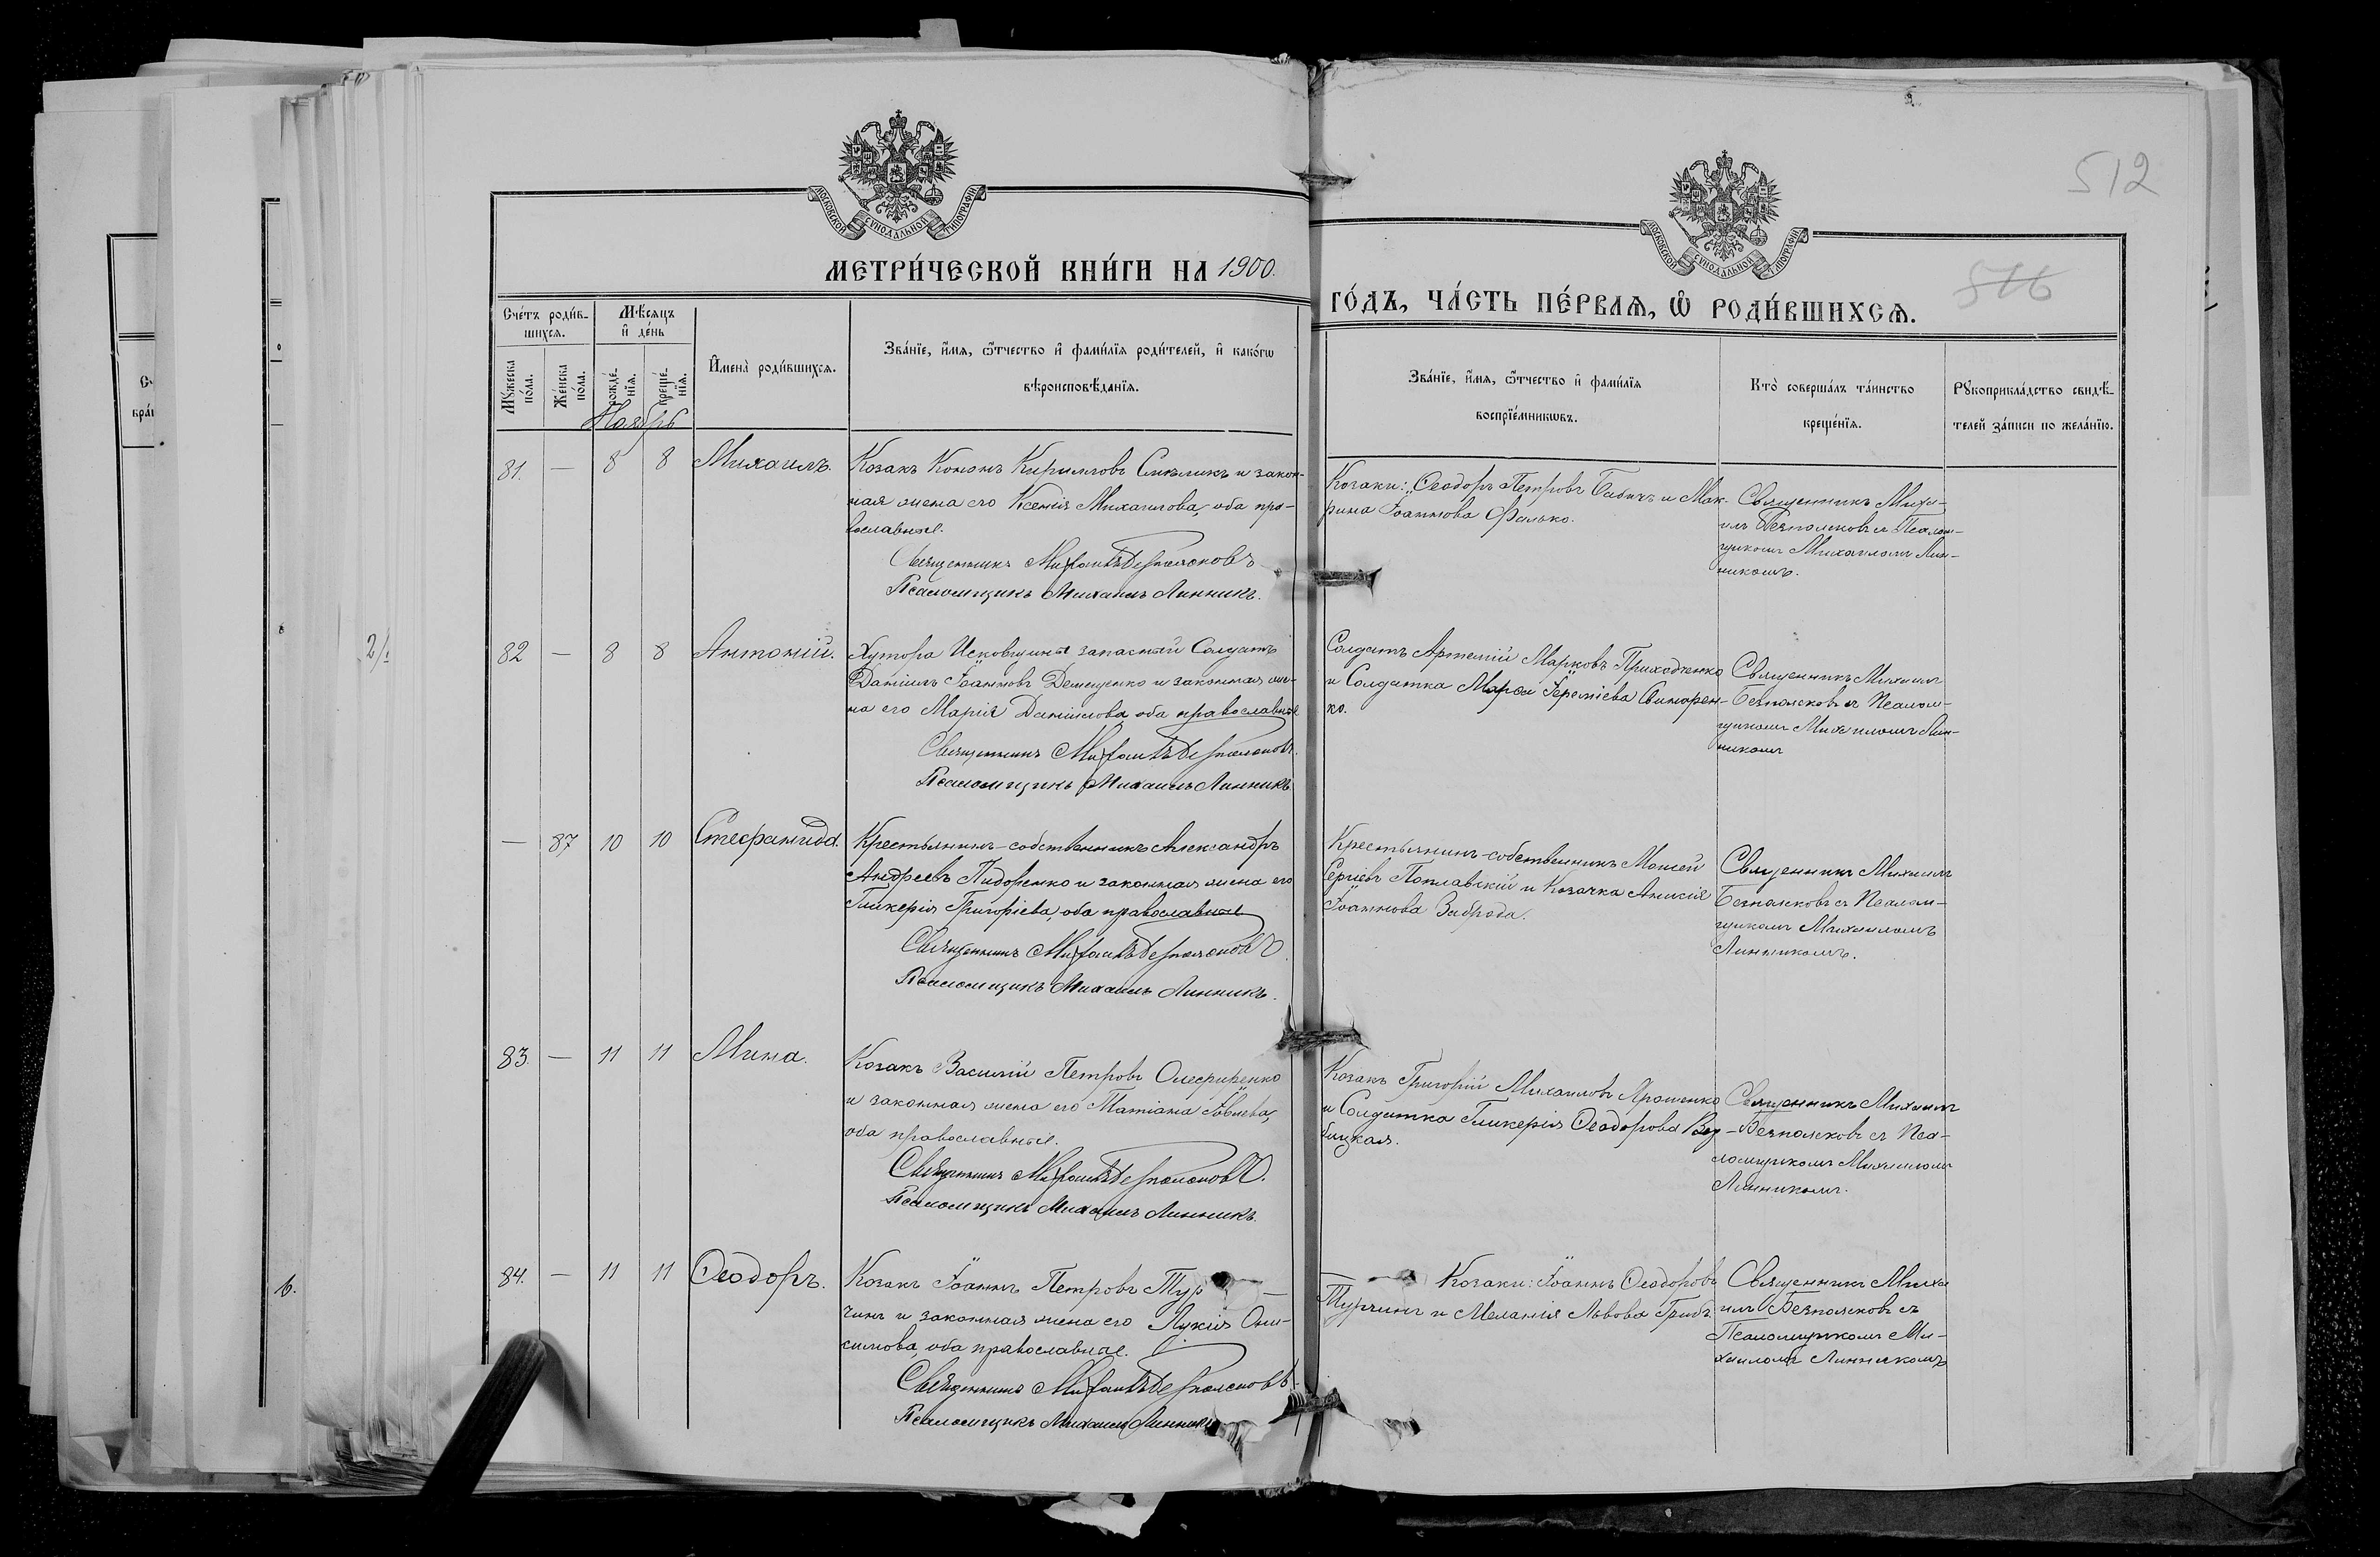 МОСКОВСКОЙ СѴНОДАЛЬНОЙ ТИПОГРАФІИ
МОСКОВСКОЙ СѴНОДАЛЬНОЙ ТИПОГРАФІИ
512
516
МЕТРИ́ЧЕСКОЙ КНИ́ГИ НА 1900.
ГО́ДЪ, ЧА́СТЬ ПЕ́РВАѦ, Ѡ҆ РОДИ́ВШИХСѦ.
Сче́тъ роди́в-
шихсѧ.
Мѣ́сѧцъ
и҆ де́нь
Мꙋ́жеска
по́ла.
Же́нска
по́ла.
рожде́-
нїѧ.
креще́-
нїѧ.
И҆мена̀ роди́вшихсѧ.
Зва́нїе, и҆́мѧ, ѻ҆́тчество и҆ фами́лїѧ роди́телей, и҆ како́гѡ
вѣроисповѣ́данїѧ.
Зва́нїе, и҆́мѧ, ѻ҆́тчество и҆ фами́лїѧ
воспрїе́мникѡвъ.
Кто̀ соверша́лъ та́инство
креще́нїѧ.
Рꙋкоприкла́дство свидѣ́-
телей за́писи по жела́нїю.
Ноябрь
81. — 8 8 Михаилъ.
Козакъ Кононъ Кирилловъ и закон-
ная жена его Ксенія Михаилова, оба пра-
вославные.
Священникъ Михаилъ Безпалсковъ
Псаломщикъ Михаилъ Линникъ.
Козаки: Ѳеодоръ Петровъ Бабичъ и Мак-
рина Іоаннова Фалько.
Священникъ Миха-
илъ Безпалсковъ съ Псалом-
щикомъ Михаиломъ Лин-
никомъ.
82 — 8 8 Антоній.
Хутора Исковщины запасный Солдатъ
Даніилъ Іоанновъ Демщенко и законная же-
на его Марія Даніилова, оба православные
Священникъ Михаилъ Безпалсковъ.
Псаломщикъ Михаилъ Линникъ
Солдатъ Артемій Марковъ Приходченко
и Солдатка Марѳа Іереміева Симорен-
ко.
Священникъ Михаилъ
Безпалсковъ съ Псалом-
щикомъ Михаиломъ Лин-
никомъ
— 87 10 10 Стефанида.
Крестьянинъ-собственникъ Александръ
Андреевъ Пидоренко и законная жена его
Гликерія Григоріева, оба православные
Священникъ Михаилъ Безпалсковъ.
Псаломщикъ Михаилъ Линникъ.
Крестьянинъ-собственникъ Моисей
Сергіевъ Поплавскій и Козачка Анисія
Іоаннова Заброда.
Священникъ Михаилъ
Безпалсковъ съ Псалом-
щикомъ Михаиломъ
Линникомъ.
83. — 11 11 Мина.
Козакъ Василій Петровъ Олефиренко
и законная жена его Татіана Іовлева,
оба православные.
Священникъ Михаилъ Безпалсковъ.
Псаломщикъ Михаилъ Линникъ.
Козакъ Григорій Михаиловъ Ярошенко
и Солдатка Гликерія Ѳеодорова
Священникъ Михаилъ
Безпалсковъ съ Пса-
ломщикомъ Михаиломъ
Линникомъ.
84. — 11 11 Ѳеодоръ.
Козакъ Іоаннъ Петровъ Тур —
чинъ и законная жена его Лукія Они-
симова, оба православные.
Священникъ Михаилъ Безпалсковъ
Псаломщикъ Михаилъ Линникъ
— Козаки: Іоаннъ Ѳеодоровъ
Турчинъ и Меланія Львова Грибъ.
Священникъ Миха
илъ Безпалсковъ съ
Псаломщикомъ Ми-
хаиломъ Линникомъ